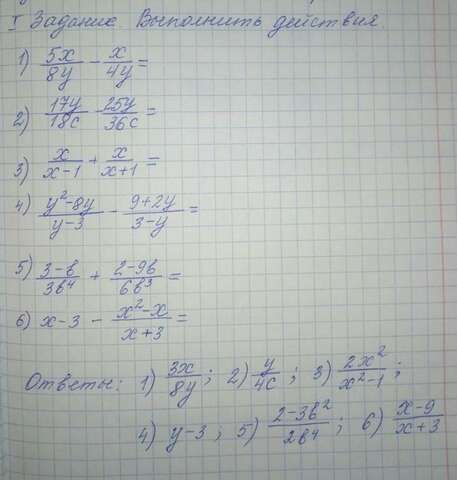 I Задание. Выполнить действия.
1) 5x/8y - x/4y =
2) 17y/18c - 25y/36c =
3) x/x-1 + x/x+1 =
4) y²-8y/y-3 - 9+2y/3-y =
5) 3-в/3в⁴ + 2-9в/6в³ =
6) x-3 - x²-x/x+3 =
Ответы: 1) 3x/8y ; 2) y/4c ; 3) 2x²/x²-1 ;
4) y-3 ; 5) 2-3в²/2в⁴ ; 6) x-9/x+3